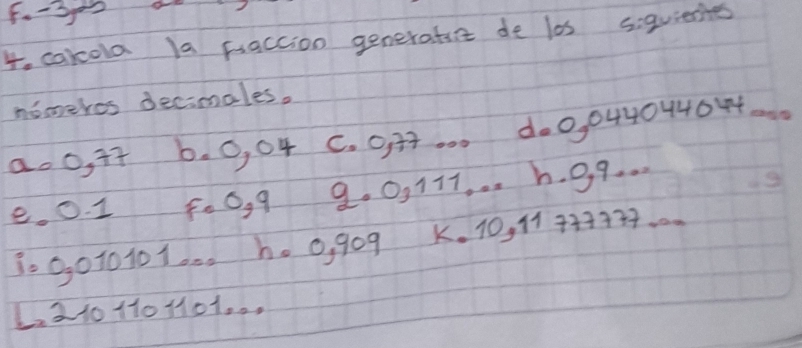 f. -3,
4. calcola la fraccion generatriz de los siguientes
números decimales.
a. 0,77 b. 0,04 c. 0,77... d. 0,044044044...
e. 0.1 f. 0,9 g. 0,111... h. 0,9...
i. 0,010101... h. 0,909 K. 10,11777777...
L. 2101101101...